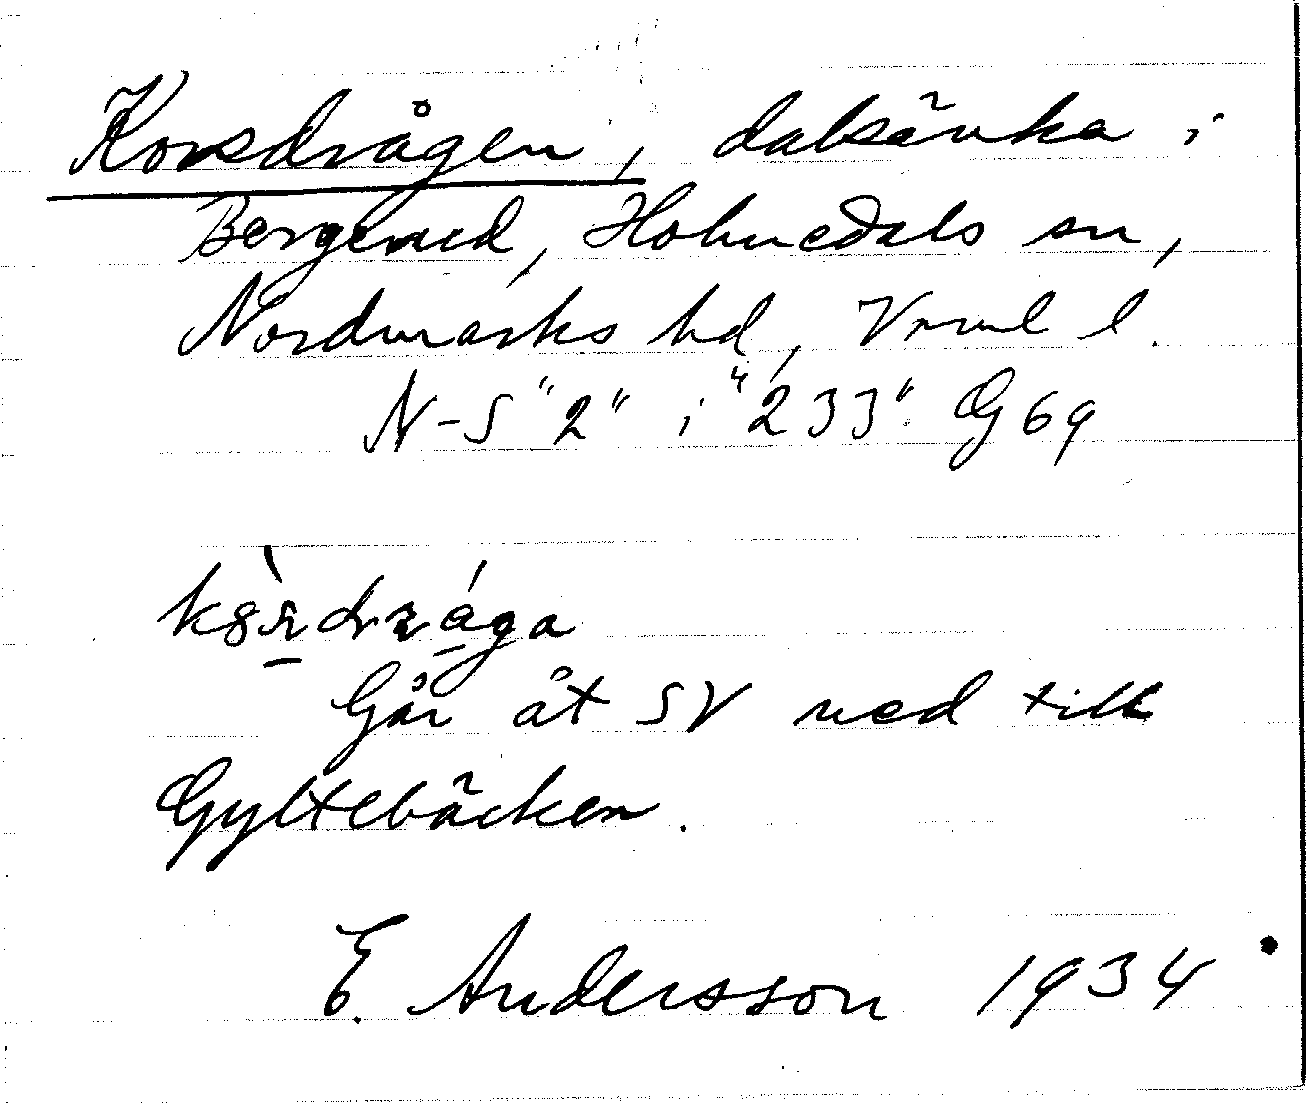 Korsdrågen, dalsänka i
Bergerud, Holmedals sn,
Nordmarks hd, Vrml l.
N-S "2" i "233" G69
Går åt SV ned till
Gyltebäcken.
E. Andersson 1934